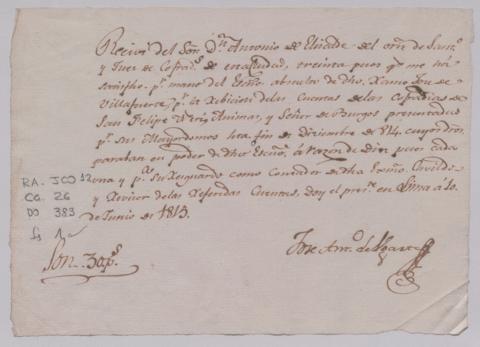 Recivi del Señ.r D.n Antonio de Elizalde del orn. de Sant.o
y Juez de Cofrad.s de esta ciudad, treinta pesos que me há
satisfho. p.r mano del Essno. absoluto de dho. Xamo Jose de
Villafuerte, p.r la revicion de las Cuentas de las Cofradias de
San Felipe Neri, Animas, y Señor de Burgos presentadas
p.r sus Mayordomos hta. fin de Diciembre de 814. cuyos dros.
paraban en poder de dho Escno., á razon de diez pesos cada
una y p.a su resguardo como Contador de dha
y Revisor de las Referidas Cuentas, doy el pres.te en Lima á 10.
de Junio de 1815.
Jose Ant.o de Ugarte
Son 30 p.s
RA. JCO 12
CA. 26
DO 383
fs 1